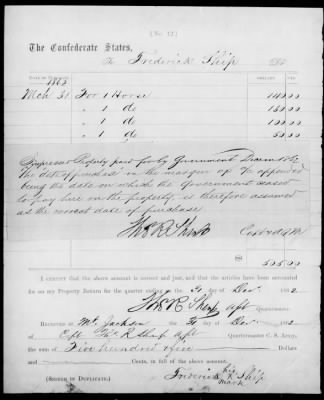 [No. 12.]
The Confederate States,
To Frederick Ship 186
DATE OF PURCHASE. DOLLARS
1862
Mch 31 For 1 Horse
" 1 do
" 1 do
" 1 do 50.00
Impressed Property paid for by Government
The date of purchase in the margin
being the date on which the Government ceased
to pay hire on the property, is therefore assumed
as the correct date of purchase
Thos R Sharp
Capt & AQM
505.00
I CERTIFY that the above account is correct and just, and that the articles have been accounted
for on my Property Return for the quarter ending the 31 Dec 1862
Thos R Sharp Capt Quartermaster
RECEIVED at Mt Jackson the 31 Dec 1862
of Capt Thos R Sharp Quartermaster C. S. Army,
the sum of Five hundred & five Dollars
and Cents, in full of the above account.
Frederick his X Ship
mark
(SIGNED IN DUPLICATE.)